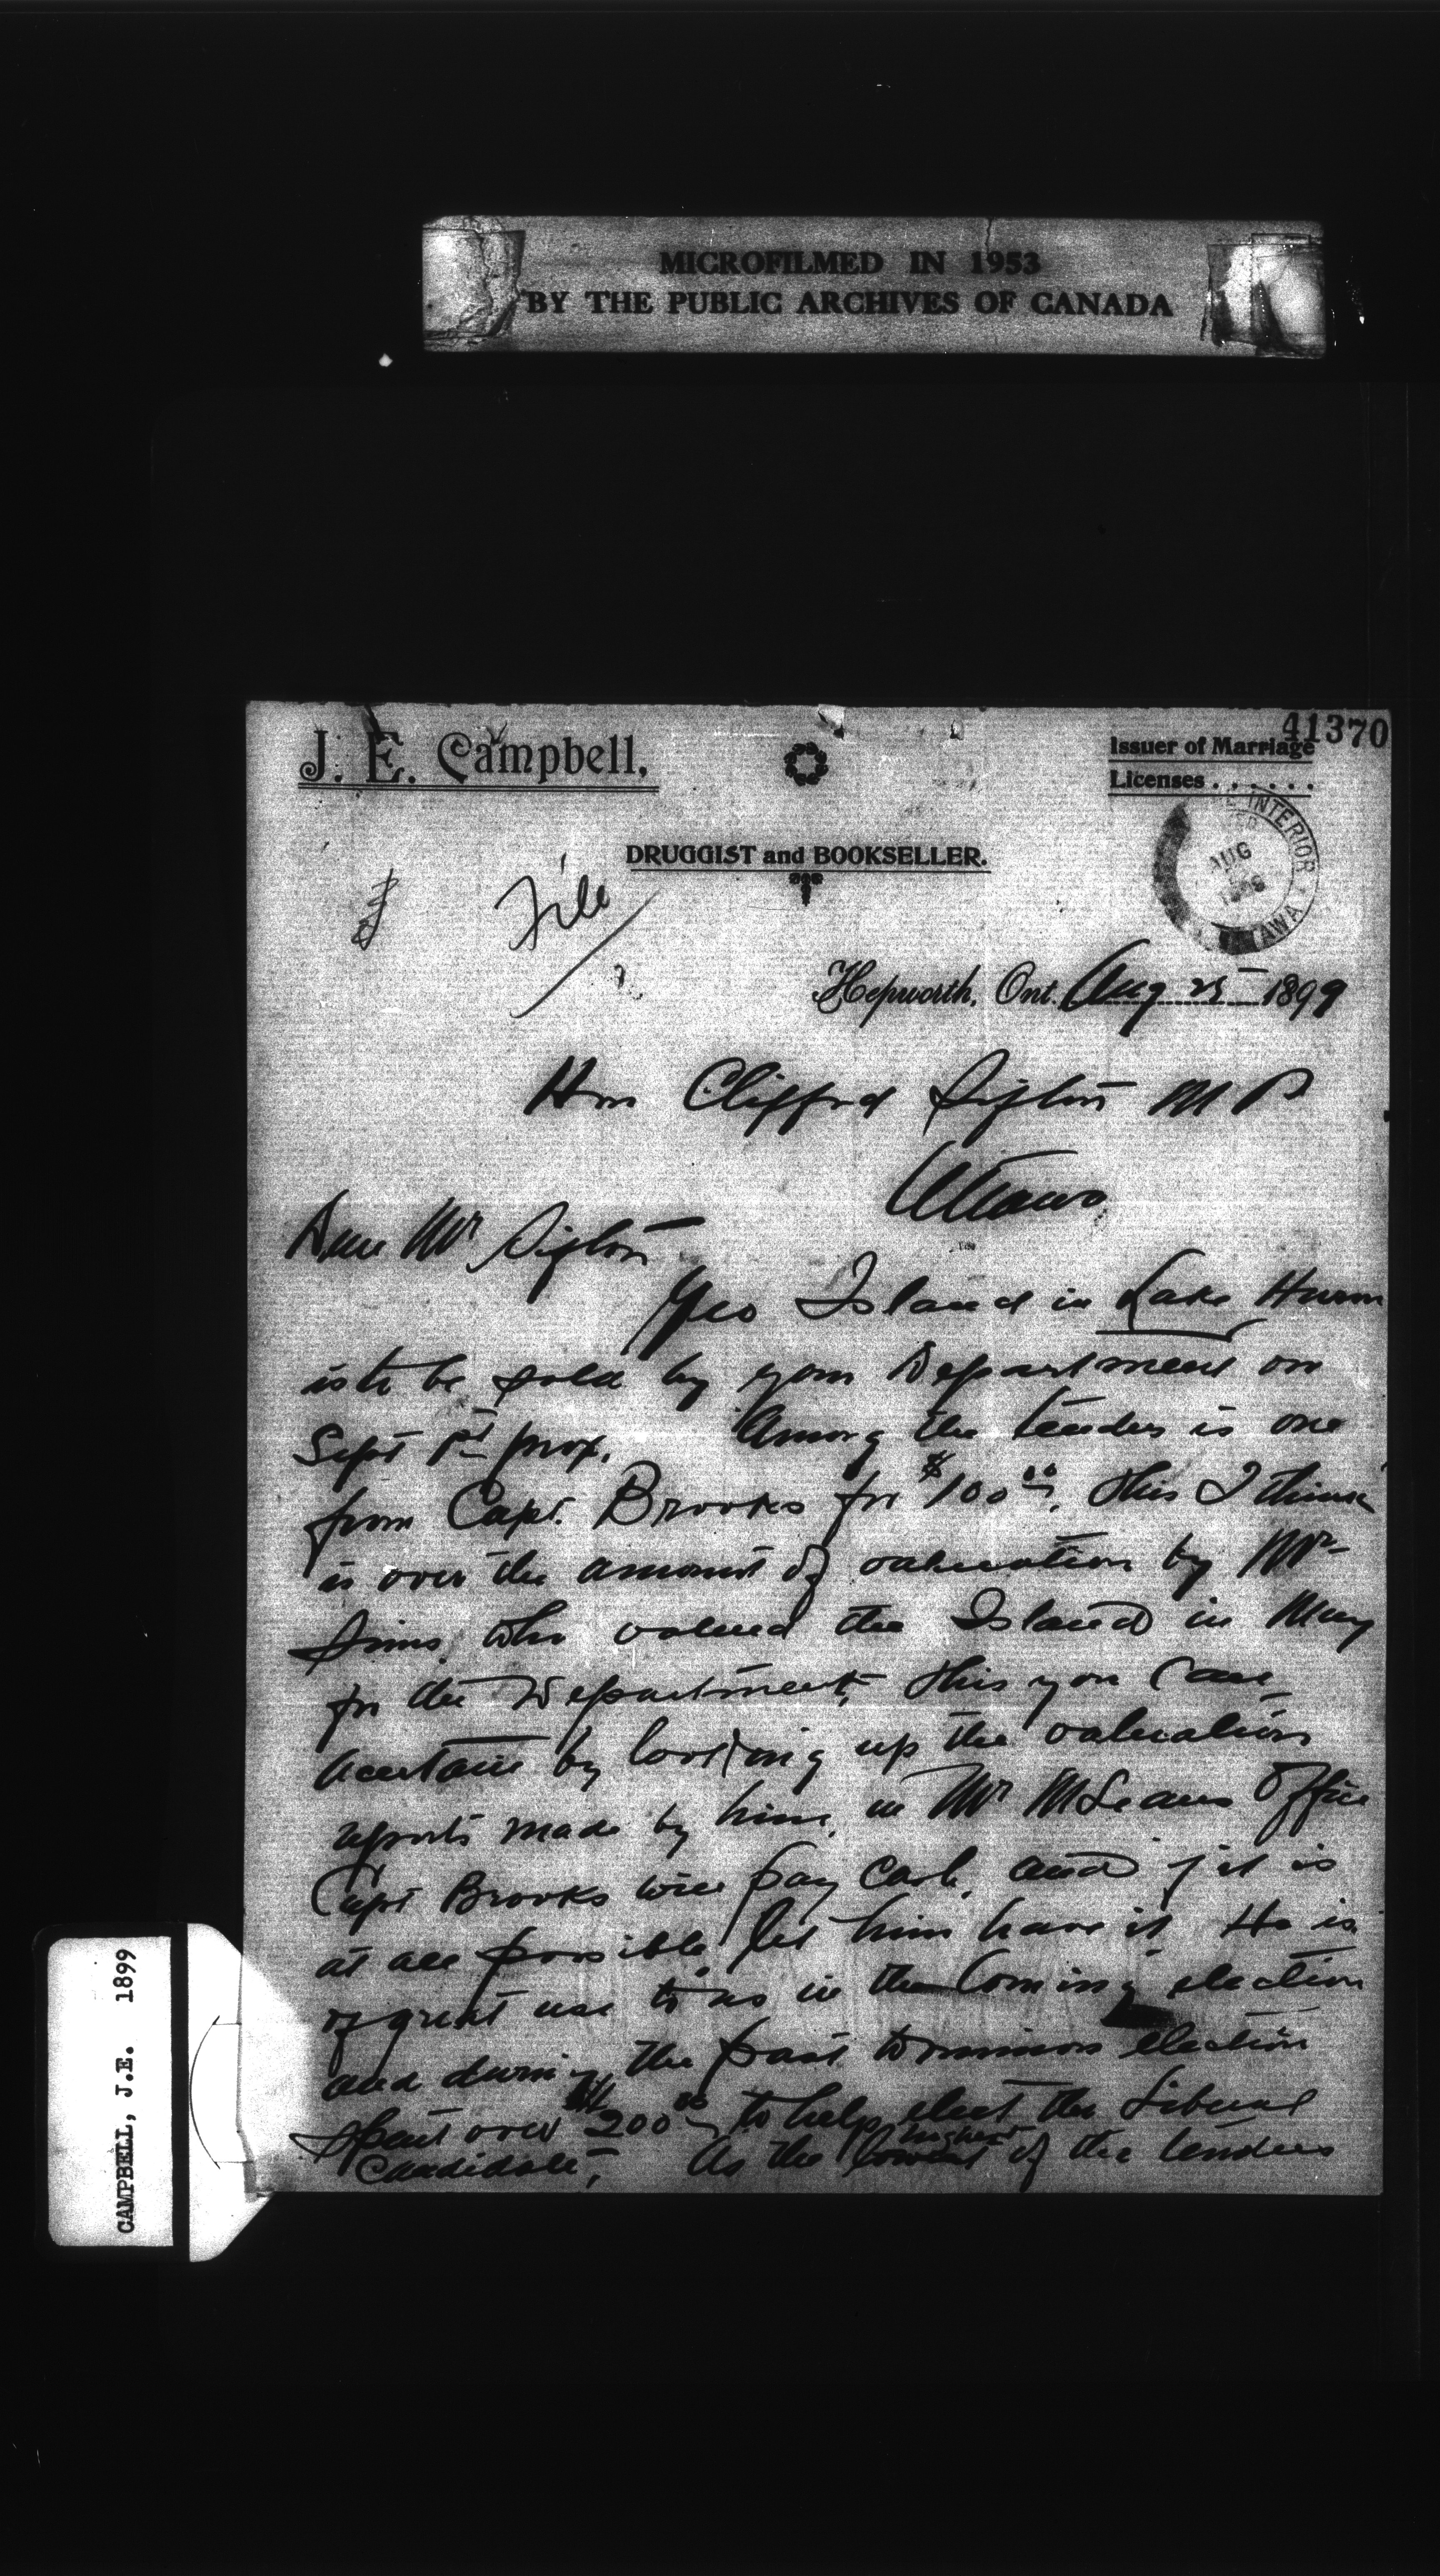 MICROFILMED IN 1953
BY THE PUBLIC ARCHIVES OF CANADA
41370
J. E. Campbell,
Issuer of Marriage
Licenses . . . . . .
DRUGGIST and BOOKSELLER.
INTERIOR
AUG
1899
File
Hepworth, Ont. Aug 25 1899
Hon Clifford Sifton M P
Ottawa
Dear Mr Sifton
Yeo Island in Lake Huron
is to be sold by your Department on
Sept 1st prox. Among the tenders is one
from Capt. Brooks for $100.00. this I think
is over the amount of valuation by Mr
Sims, who valued the Island in May
for the Department, this you can
acertain by looking up the valuation
reports made by him, in Mr McLeans Office
Capt Brooks will pay cash, and if it is
at all possible, let him have it He is
of great use to us in the Coming election
and during the past Dominion election
spent over $200.00 to help elect the Liberal
Candidate, As the highest of the tenders
CAMPBELL, J.E. 1899